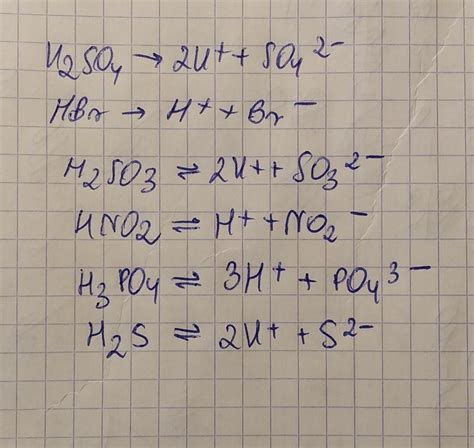 H₂SO₄ → 2H⁺ + SO₄²⁻
HBr → H⁺ + Br⁻
H₂SO₃ ⇌ 2H⁺ + SO₃²⁻
HNO₂ ⇌ H⁺ + NO₂⁻
H₃PO₄ ⇌ 3H⁺ + PO₄³⁻
H₂S ⇌ 2H⁺ + S²⁻